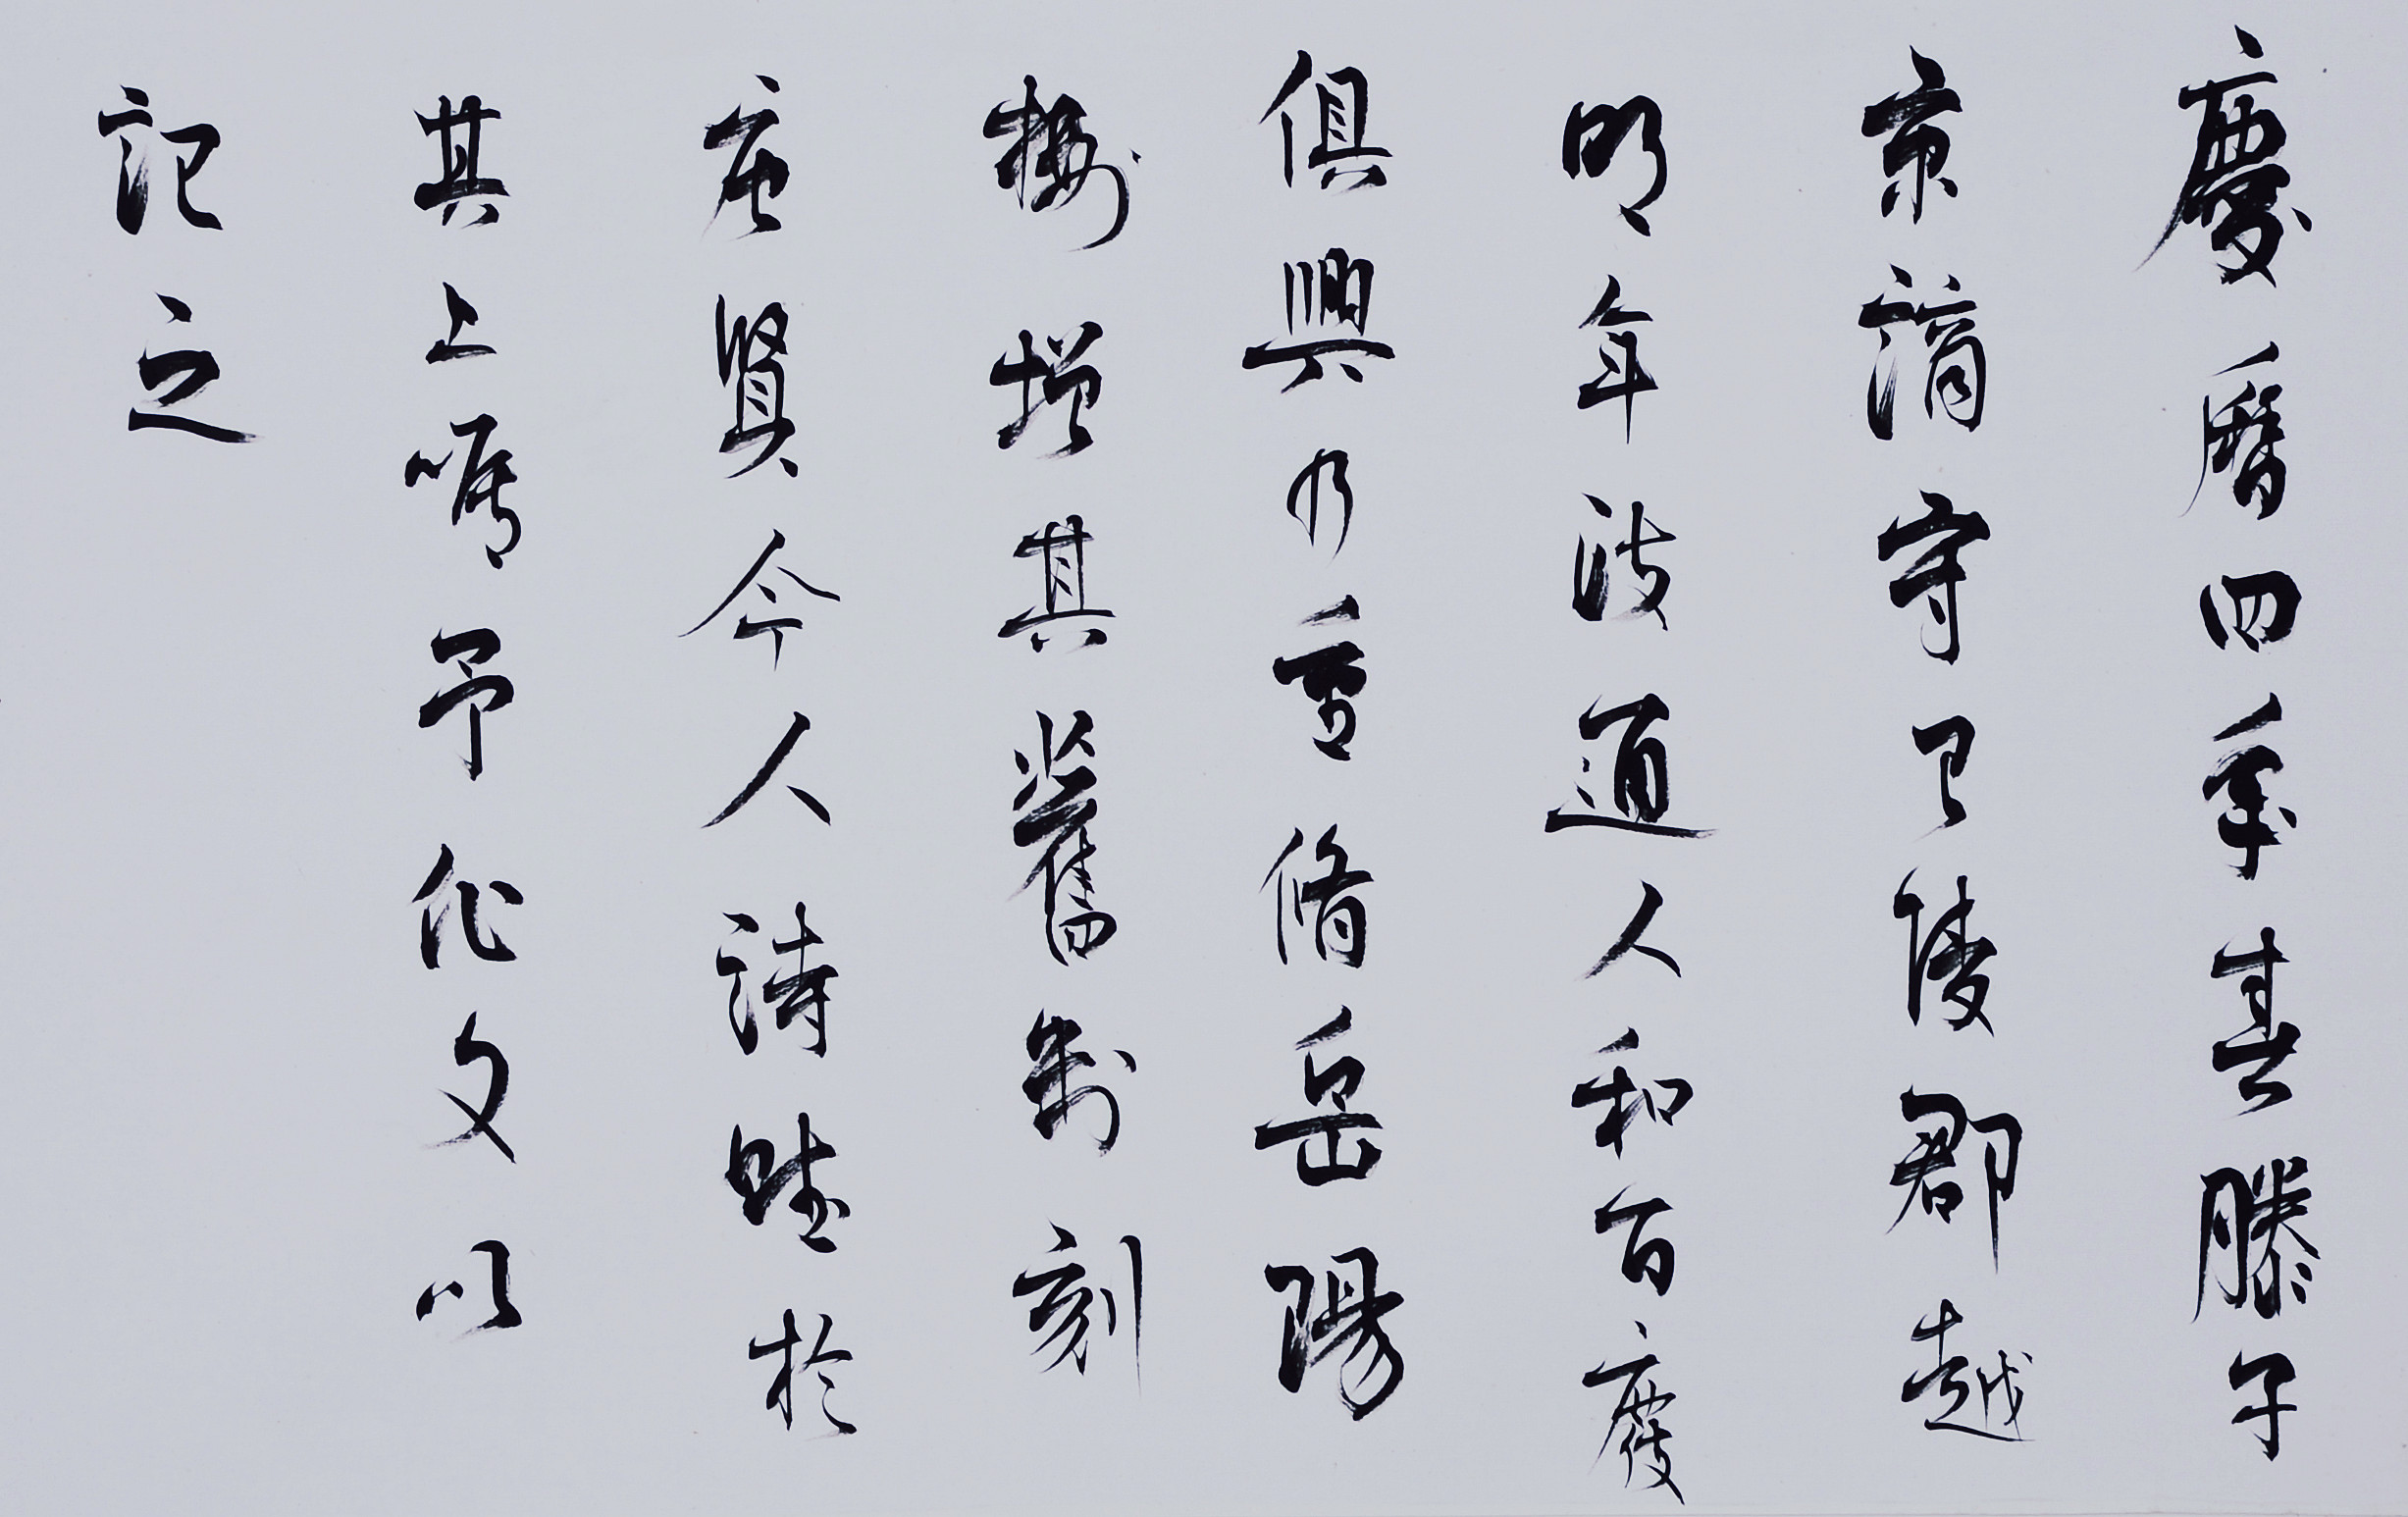 慶曆四年春滕子
京謫守巴陵郡越
明年政通人和百廢
俱興乃重脩岳陽
樓增其舊制刻
唐賢今人詩賦於
其上囑予作文以
記之